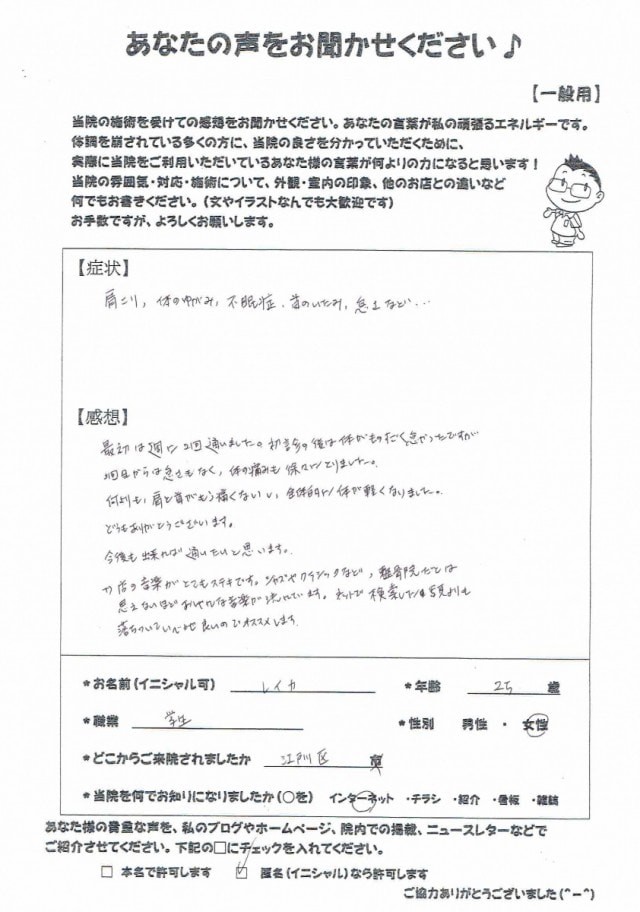 あなたの声をお聞かせください♪
【一般用】
当院の施術を受けての感想をお聞かせください。あなたの言葉が私の頑張るエネルギーです。
体調を崩されている多くの方に、当院の良さを分かっていただくために、
実際に当院をご利用いただいているあなた様の言葉が何よりの力になると思います！
当院の雰囲気・対応・施術について、外観・室内の印象、他のお店との違いなど
何でもお書きください。（文やイラストなんでも大歓迎です）
お手数ですが、よろしくお願いします。
【症状】
肩こり, 体のゆがみ, 不眠症, 首のいたみ, 怠さなど…
【感想】
最初は週に2回通いました。初診の後は体がものすごく怠かったですが
2回目からは怠さもなく, 体の痛みも徐々にとりました。
何よりも, 肩と首がもう痛くないし, 全体的に体が軽くなりました。
どうもありがとうございます。
今後も出来れば通いたいと思います。
お店の音楽がとてもステキです。ジャズやクラシックなど, 整骨院だとは
思えないほどおしゃれな音楽が流れています。ネットで検索した写真よりも
落ちついていて心地良いのでオススメします
＊お名前（イニシャル可） レイカ ＊年齢 25 歳
＊職業 学生 ＊性別 男性 ・ 女性
＊どこからご来院されましたか 江戸川区
＊当院を何でお知りになりましたか（○を） インターネット ・チラシ ・紹介 ・看板 ・雑誌
あなた様の貴重な声を、私のブログやホームページ、院内での掲載、ニュースレターなどで
ご紹介させてください。下記の□にチェックを入れてください。
□ 本名で許可します ☑ 匿名（イニシャル）なら許可します
ご協力ありがとうございました（^－^）